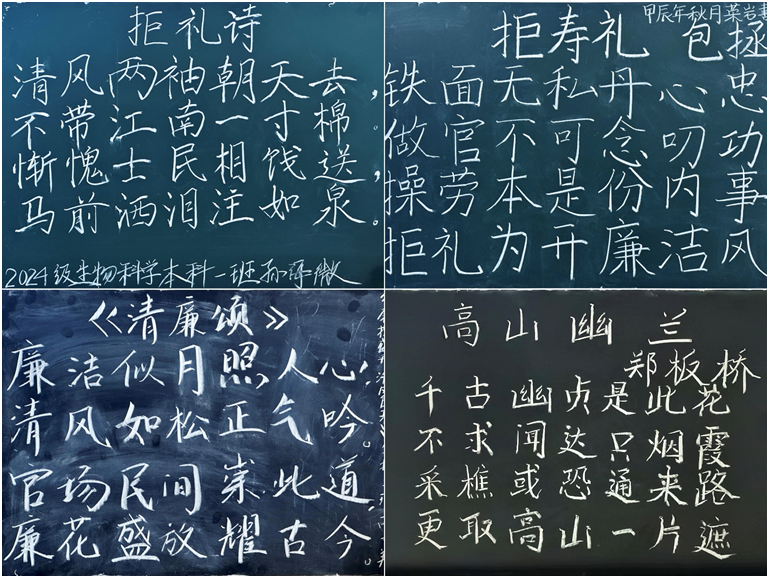 拒礼诗
清风两袖朝天去，
不带江南一寸棉。
惭愧士民相饯送，
马前洒泪注如泉。
2024级生物科学本科一班孙
甲辰年秋月
拒寿礼 包拯
铁面无私丹心忠
做官不可念叨功
操劳本是份内事
拒礼为开廉洁风
《清廉颂》
廉洁似月照人心，
清风如松正气吟。
官场民间崇此道
廉花盛放耀古今。
高山幽兰
郑板桥
千古幽贞是此花
不求闻达只烟霞
采樵或恐通来路
更取高山一片遮